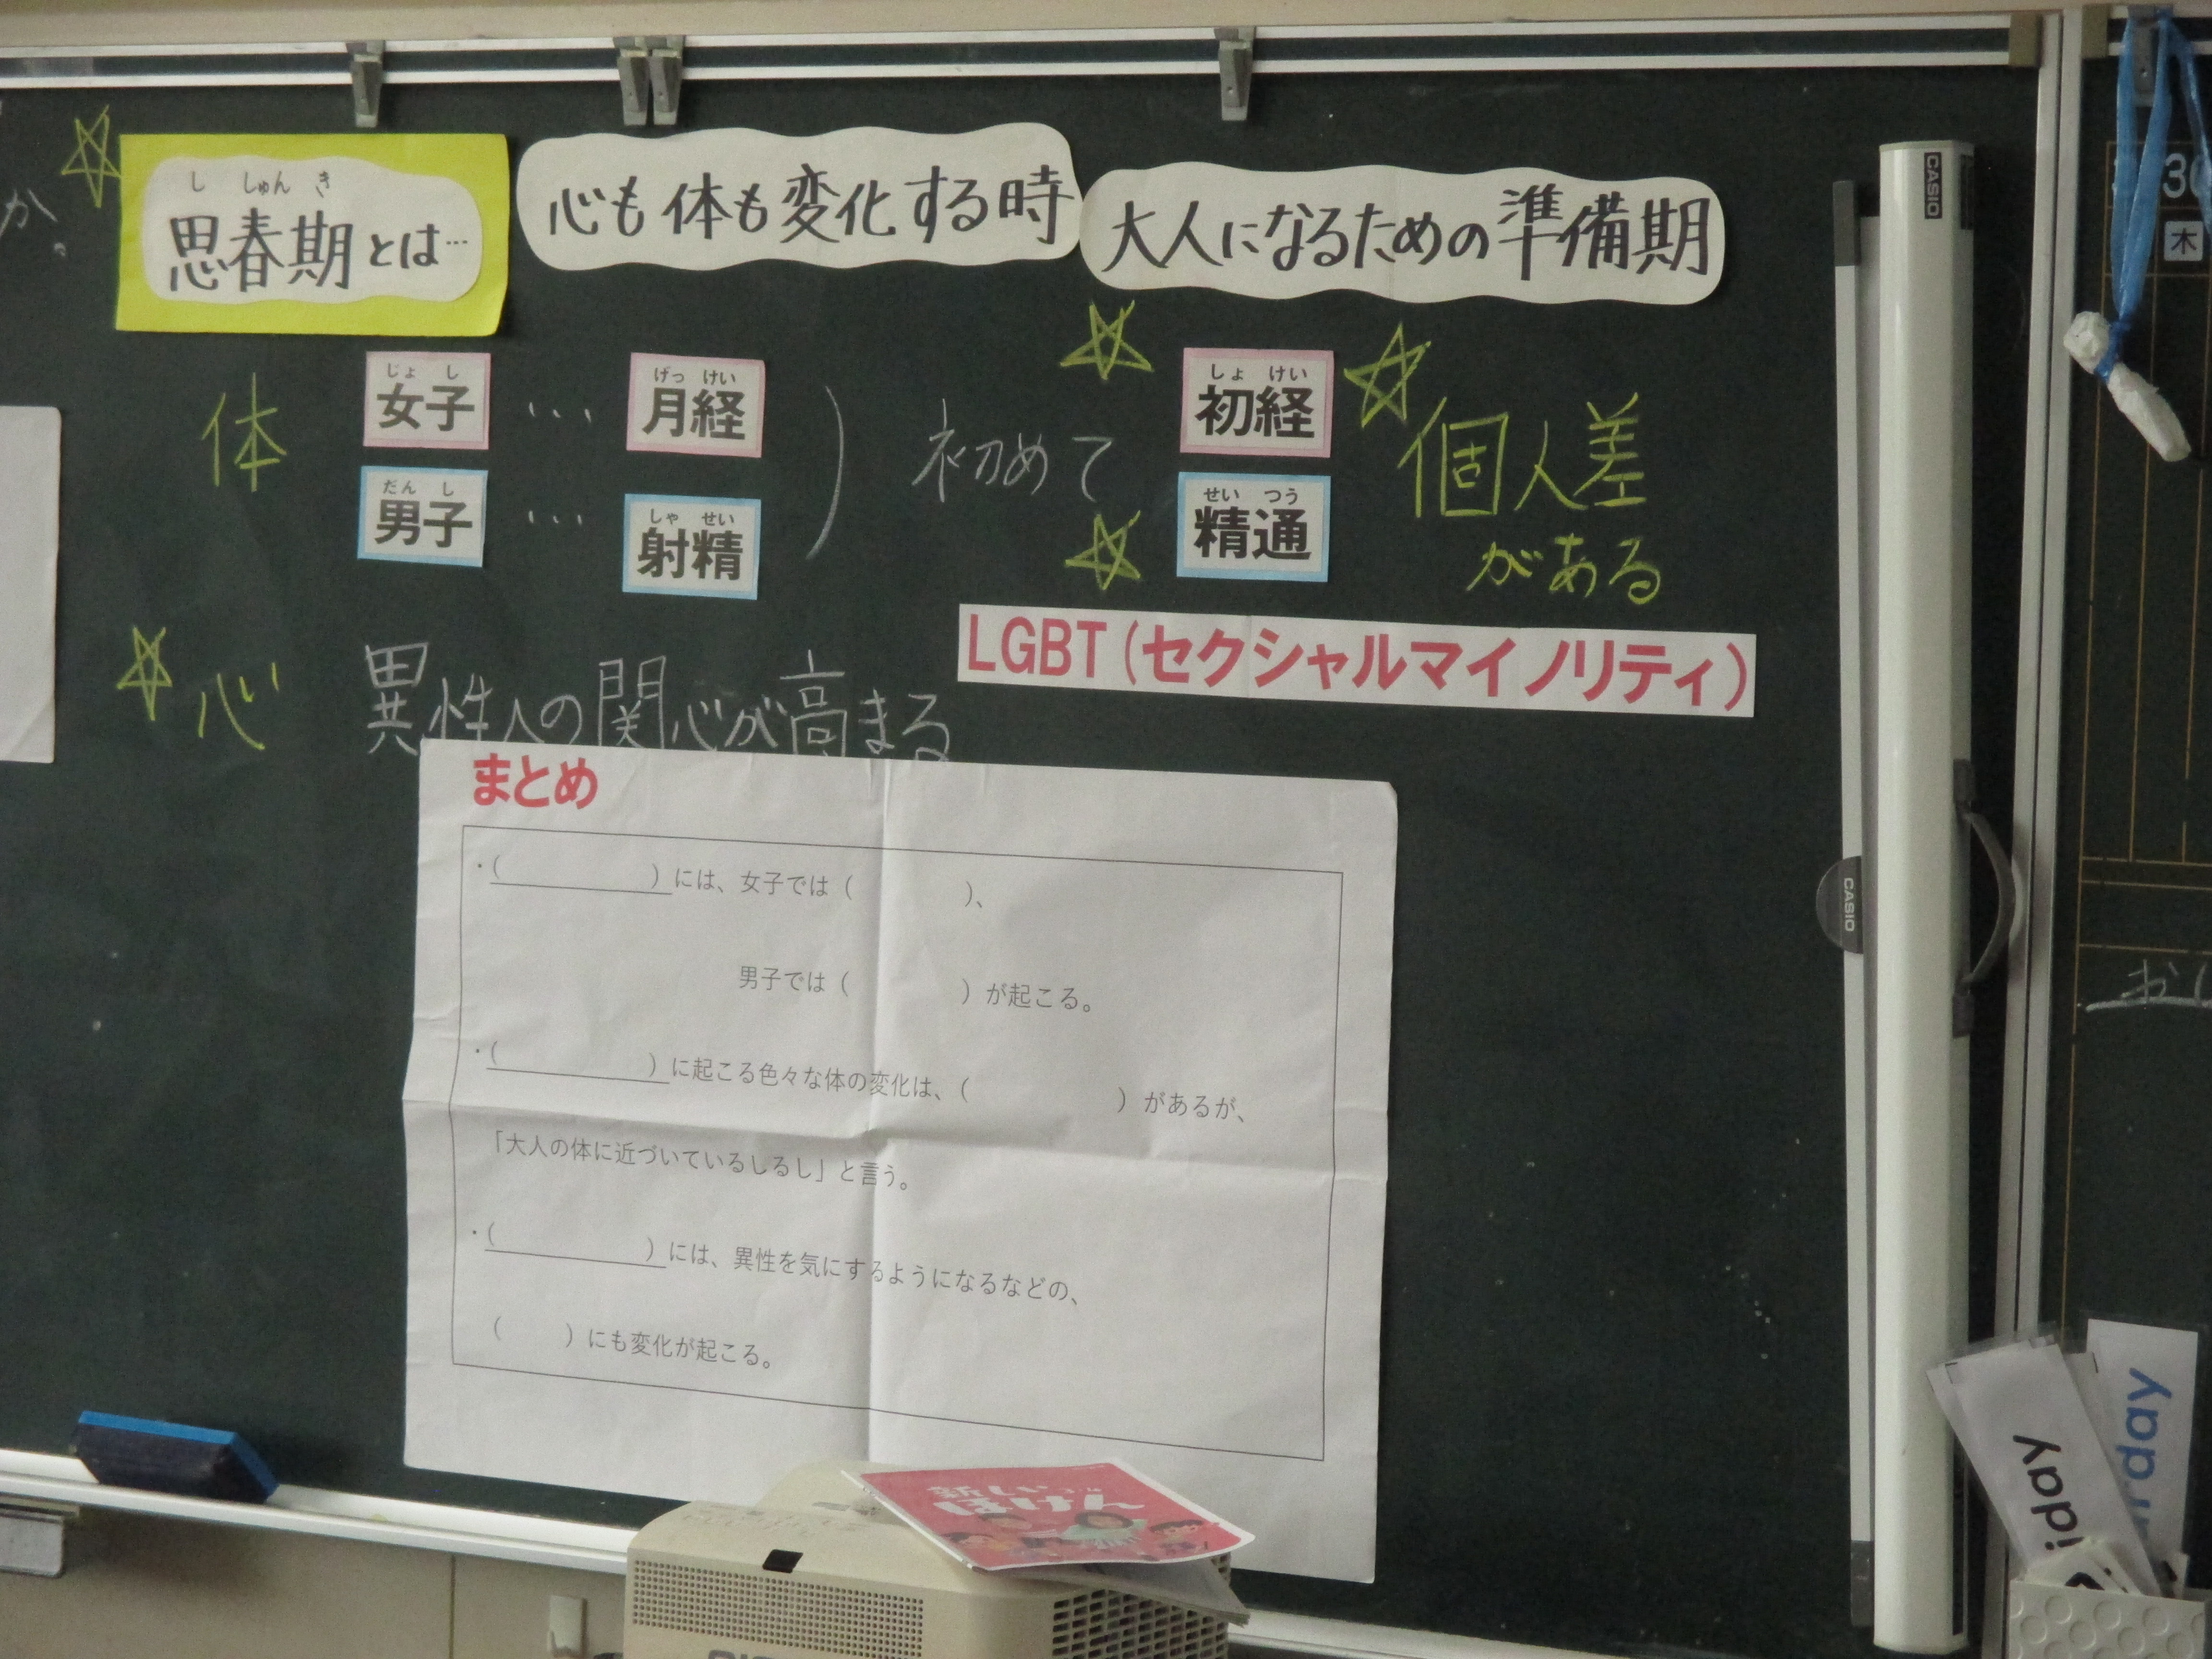 か。
思春期とは…
ししゅんき
心も体も変化する時
大人になるための準備期
体
女子
じょし
…
月経
げっけい
男子
だんし
…
射精
しゃせい
)
初めて
初経
しょけい
精通
せいつう
個人差
がある
心
異性への関心が高まる
LGBT(セクシャルマイノリティ)
まとめ
・(　　　)には、女子では(　　　)、
男子では(　　　)が起こる。
・(　　　)に起こる色々な体の変化は、(　　　)があるが、
「大人の体に近づいているしるし」と言う。
・(　　　)には、異性を気にするようになるなどの、
(　　　)にも変化が起こる。
新しい
ほけん
CASIO
CASIO
木
iday